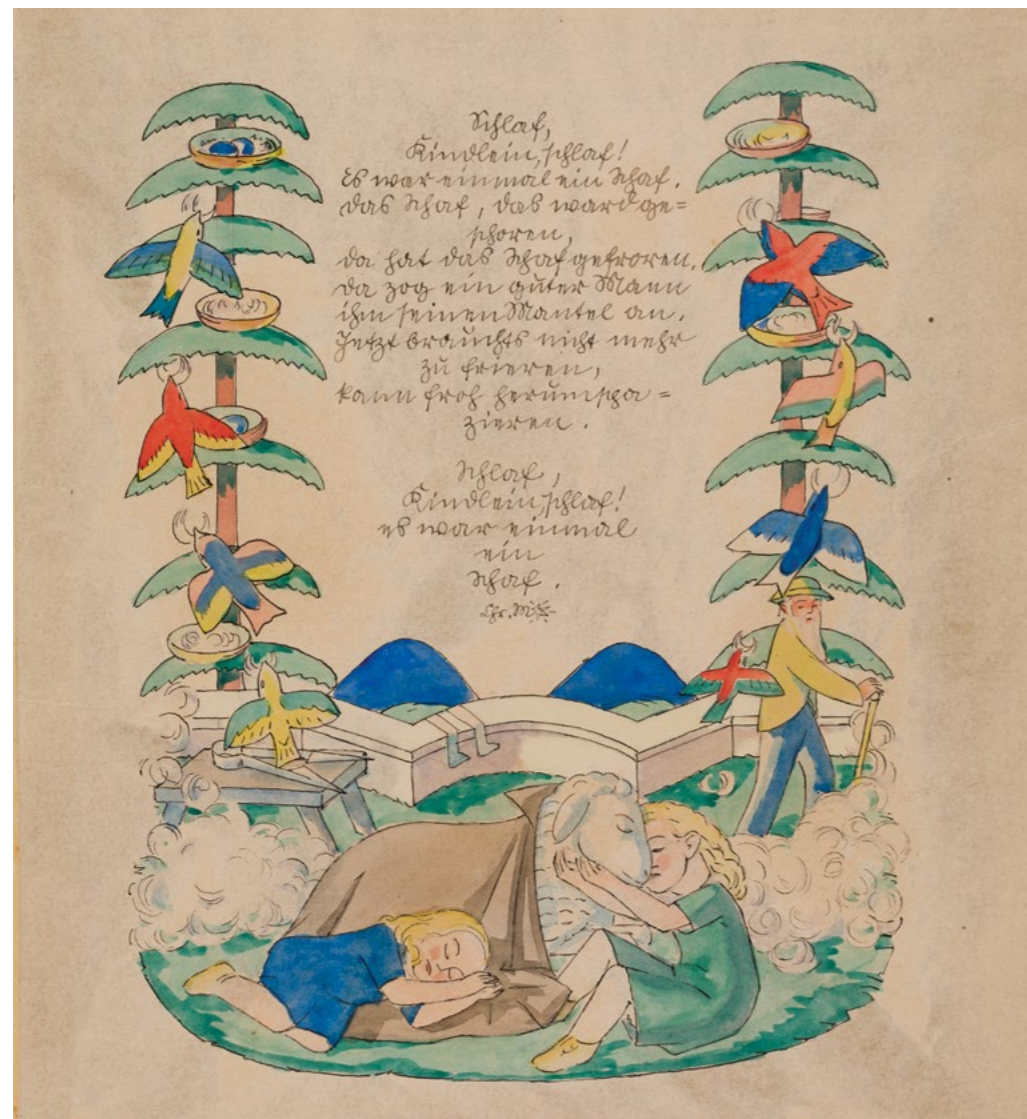 Schlaf,
Kindlein, schlaf!
es war einmal ein Schaf.
das Schaf, das ward ge=
schoren,
da hat das Schaf gefroren.
da zog ein guter Mann
ihm seinen Mantel an.
Jetzt brauchts nicht mehr
zu frieren,
kann froh herumspa=
zieren.
Schlaf,
Kindlein, schlaf!
es war einmal
ein
Schaf.
Chr. M.